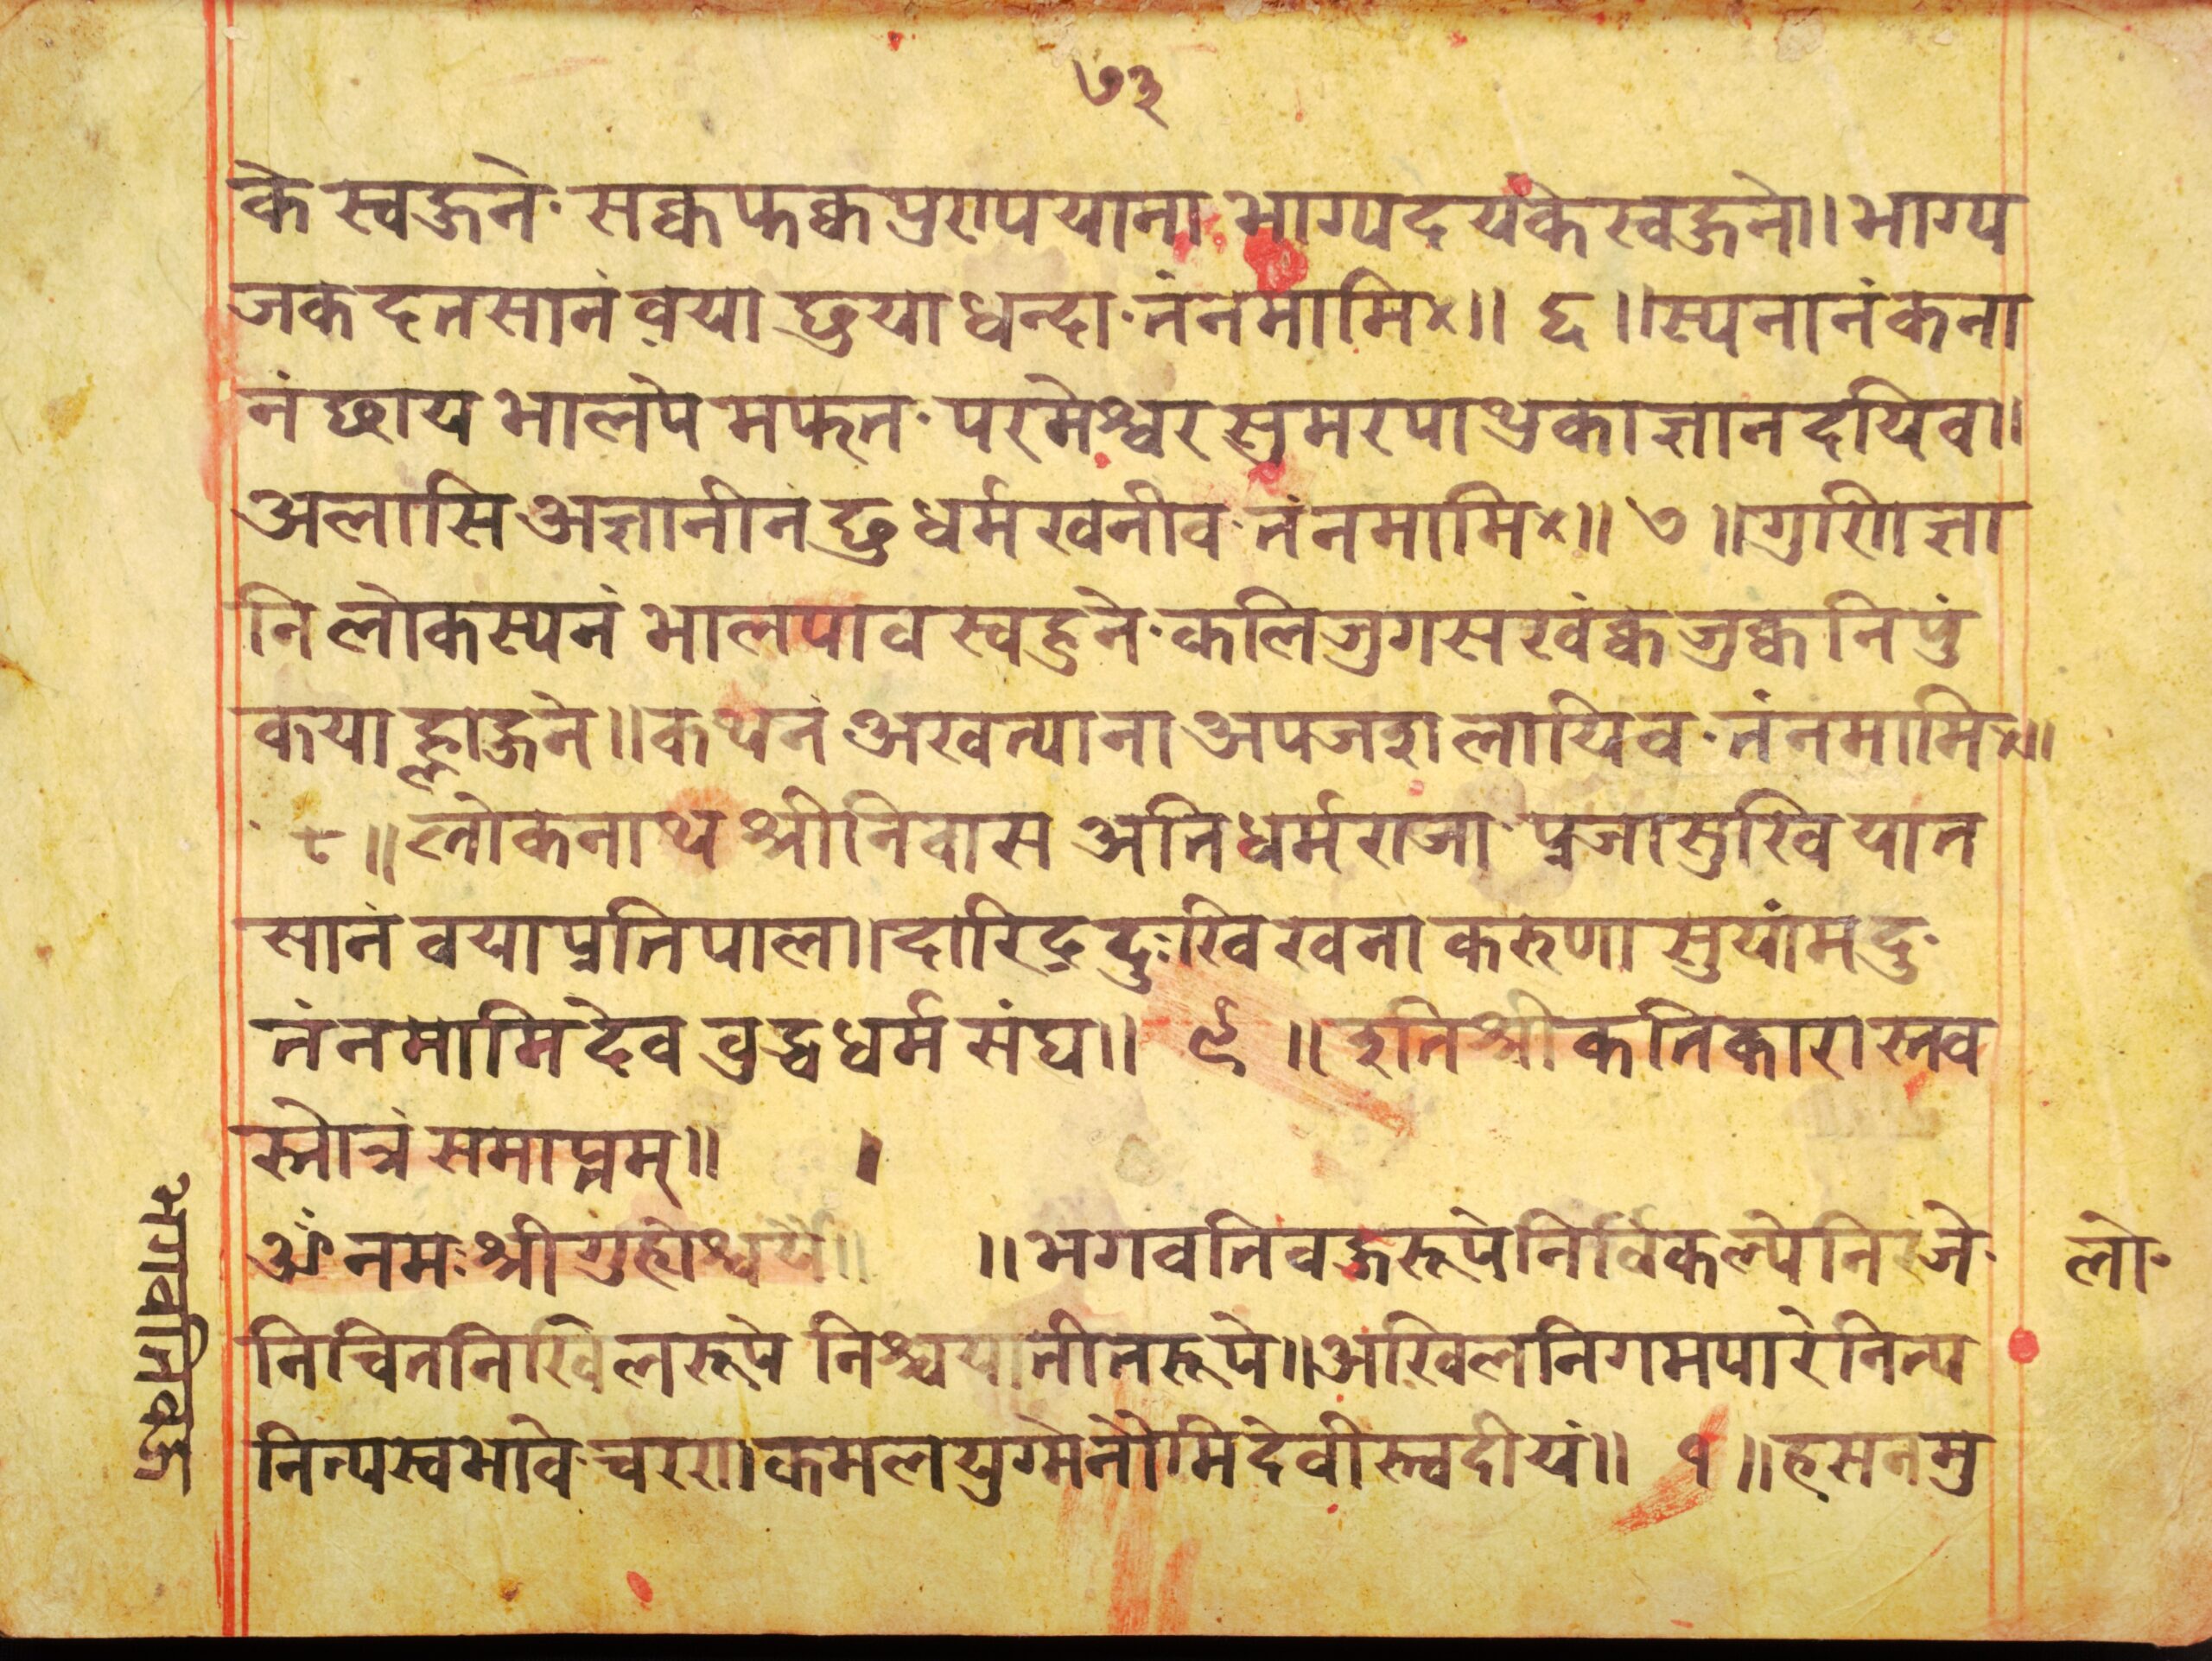 ७३
के स्वङ्जने· सकꣿफकꣿ पुराप याना भाग्यदयके स्वङ्जने॥ भाग्य
जक दतसानं वया छुया धन्दा· नंनमामि×॥ ६ ॥ स्यनानं कना
नं छाय भालपे मफत· परमेश्वर सुमरपा थ्रका ज्ञान दयिव॥
अलासि अज्ञानीनं छु धर्म खनीव· नंनमामि×॥ ७ ॥ गुरि। ज्ञा
नि लोकस्यनं भालपाव स्वहुने· कलिजुगस खंक्व जुक्व निपुं
कया ह्लाङ्जने॥ कथनं अखत्याना अपजश लायिव· नंनमामि×॥
८ ॥ लोकनाथ श्रीनिवास अति धर्मराजा· प्रजा सुखि यात
सानं वया प्रतिपाल॥ दारिद्र दुःखि खना करुणा सुयां मदु·
नंनमामि देव वुद्ध धर्म संघ॥ ९ ॥ इति श्री कतिकारा स्तव
स्तोत्रं समाप्तम्॥ ।
ॐ नमः श्री गुह्येश्वर्यै॥ ॥ भगवति वज्ररूपे निर्विकल्पे निरंजे· लो·
निचित निखिलरूपे निश्चयातीतरूपे॥ अखिल निगमपारे नित्य
नित्यस्वभावे· चरण। कमलयुग्मे नौमि देवीस्त्वदीयं॥ १ ॥ हसतमु
भगवतिवज्र